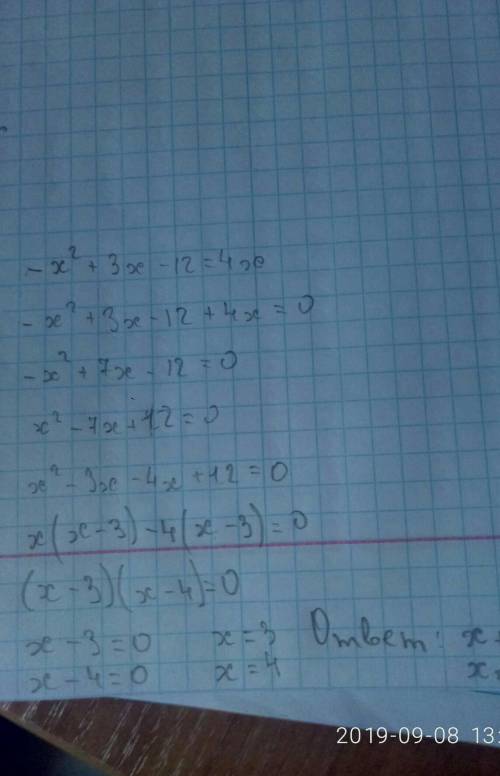 -x² + 3x - 12 = 4x
-x² + 3x - 12 + 4x = 0
-x² + 7x - 12 = 0
x² - 7x + 12 = 0
x² - 3x - 4x + 12 = 0
x(x - 3) - 4(x - 3) = 0
(x - 3)(x - 4) = 0
x - 3 = 0 x = 3 Ответ: x
x - 4 = 0 x = 4 x
2019-09-08 13: